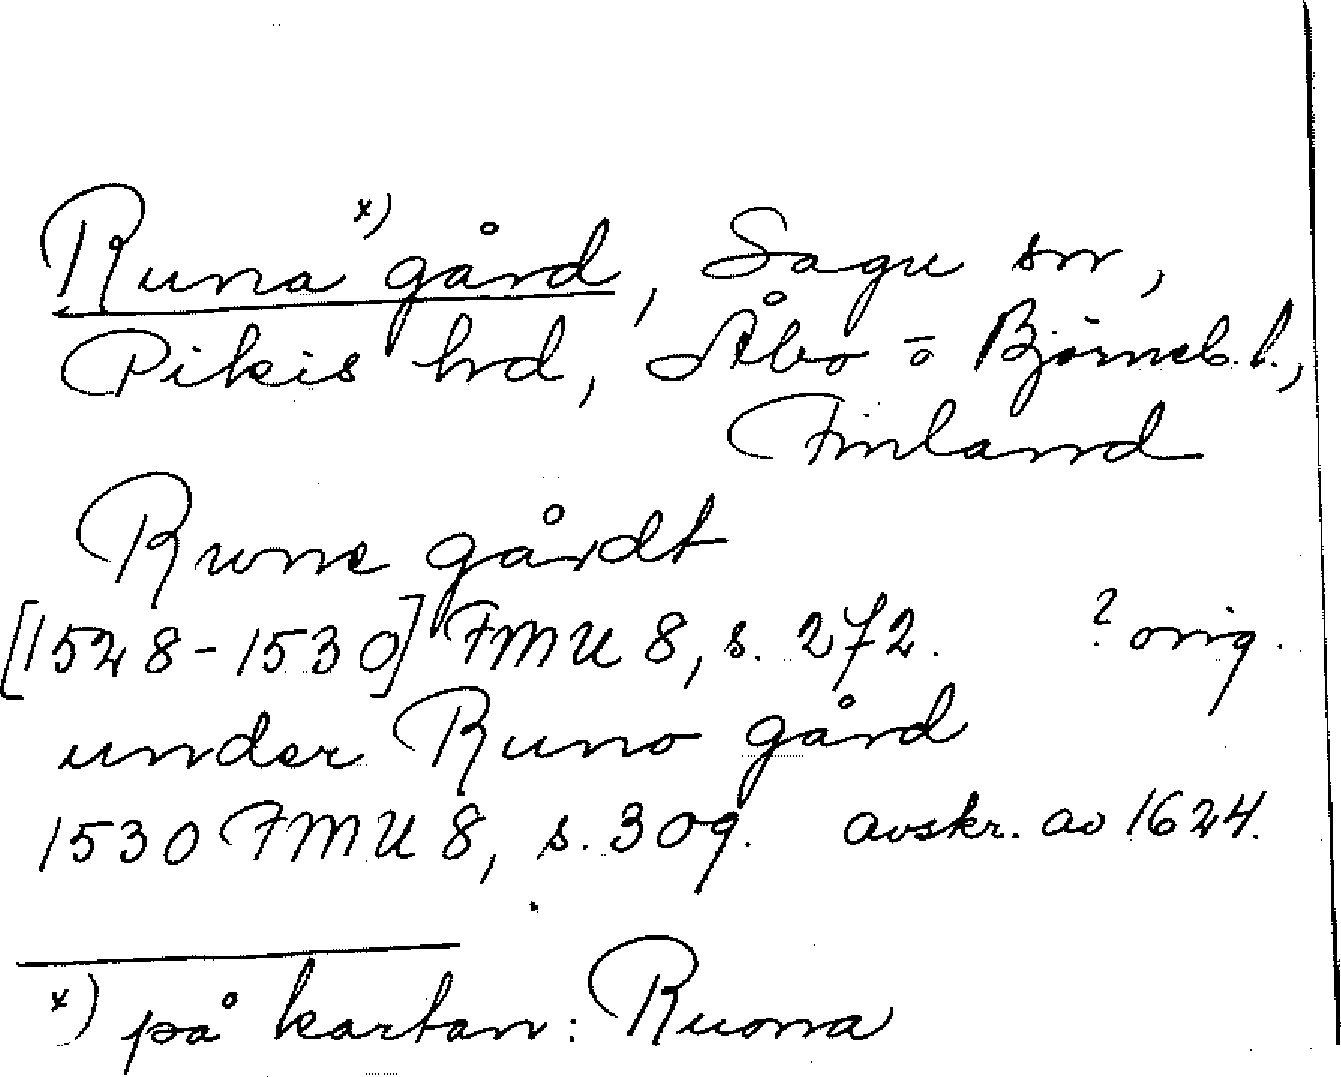 Runa x) gård, Sagu sn,
Pikis hd, Åbo o Björneb. l.,
Finland
Rune gårdt
[1528-1530] FMU 8, s. 272. ? orig.
under Runo gård
1530 FMU 8, s. 309. avskr. av 1624.
x) på kartan: Ruona